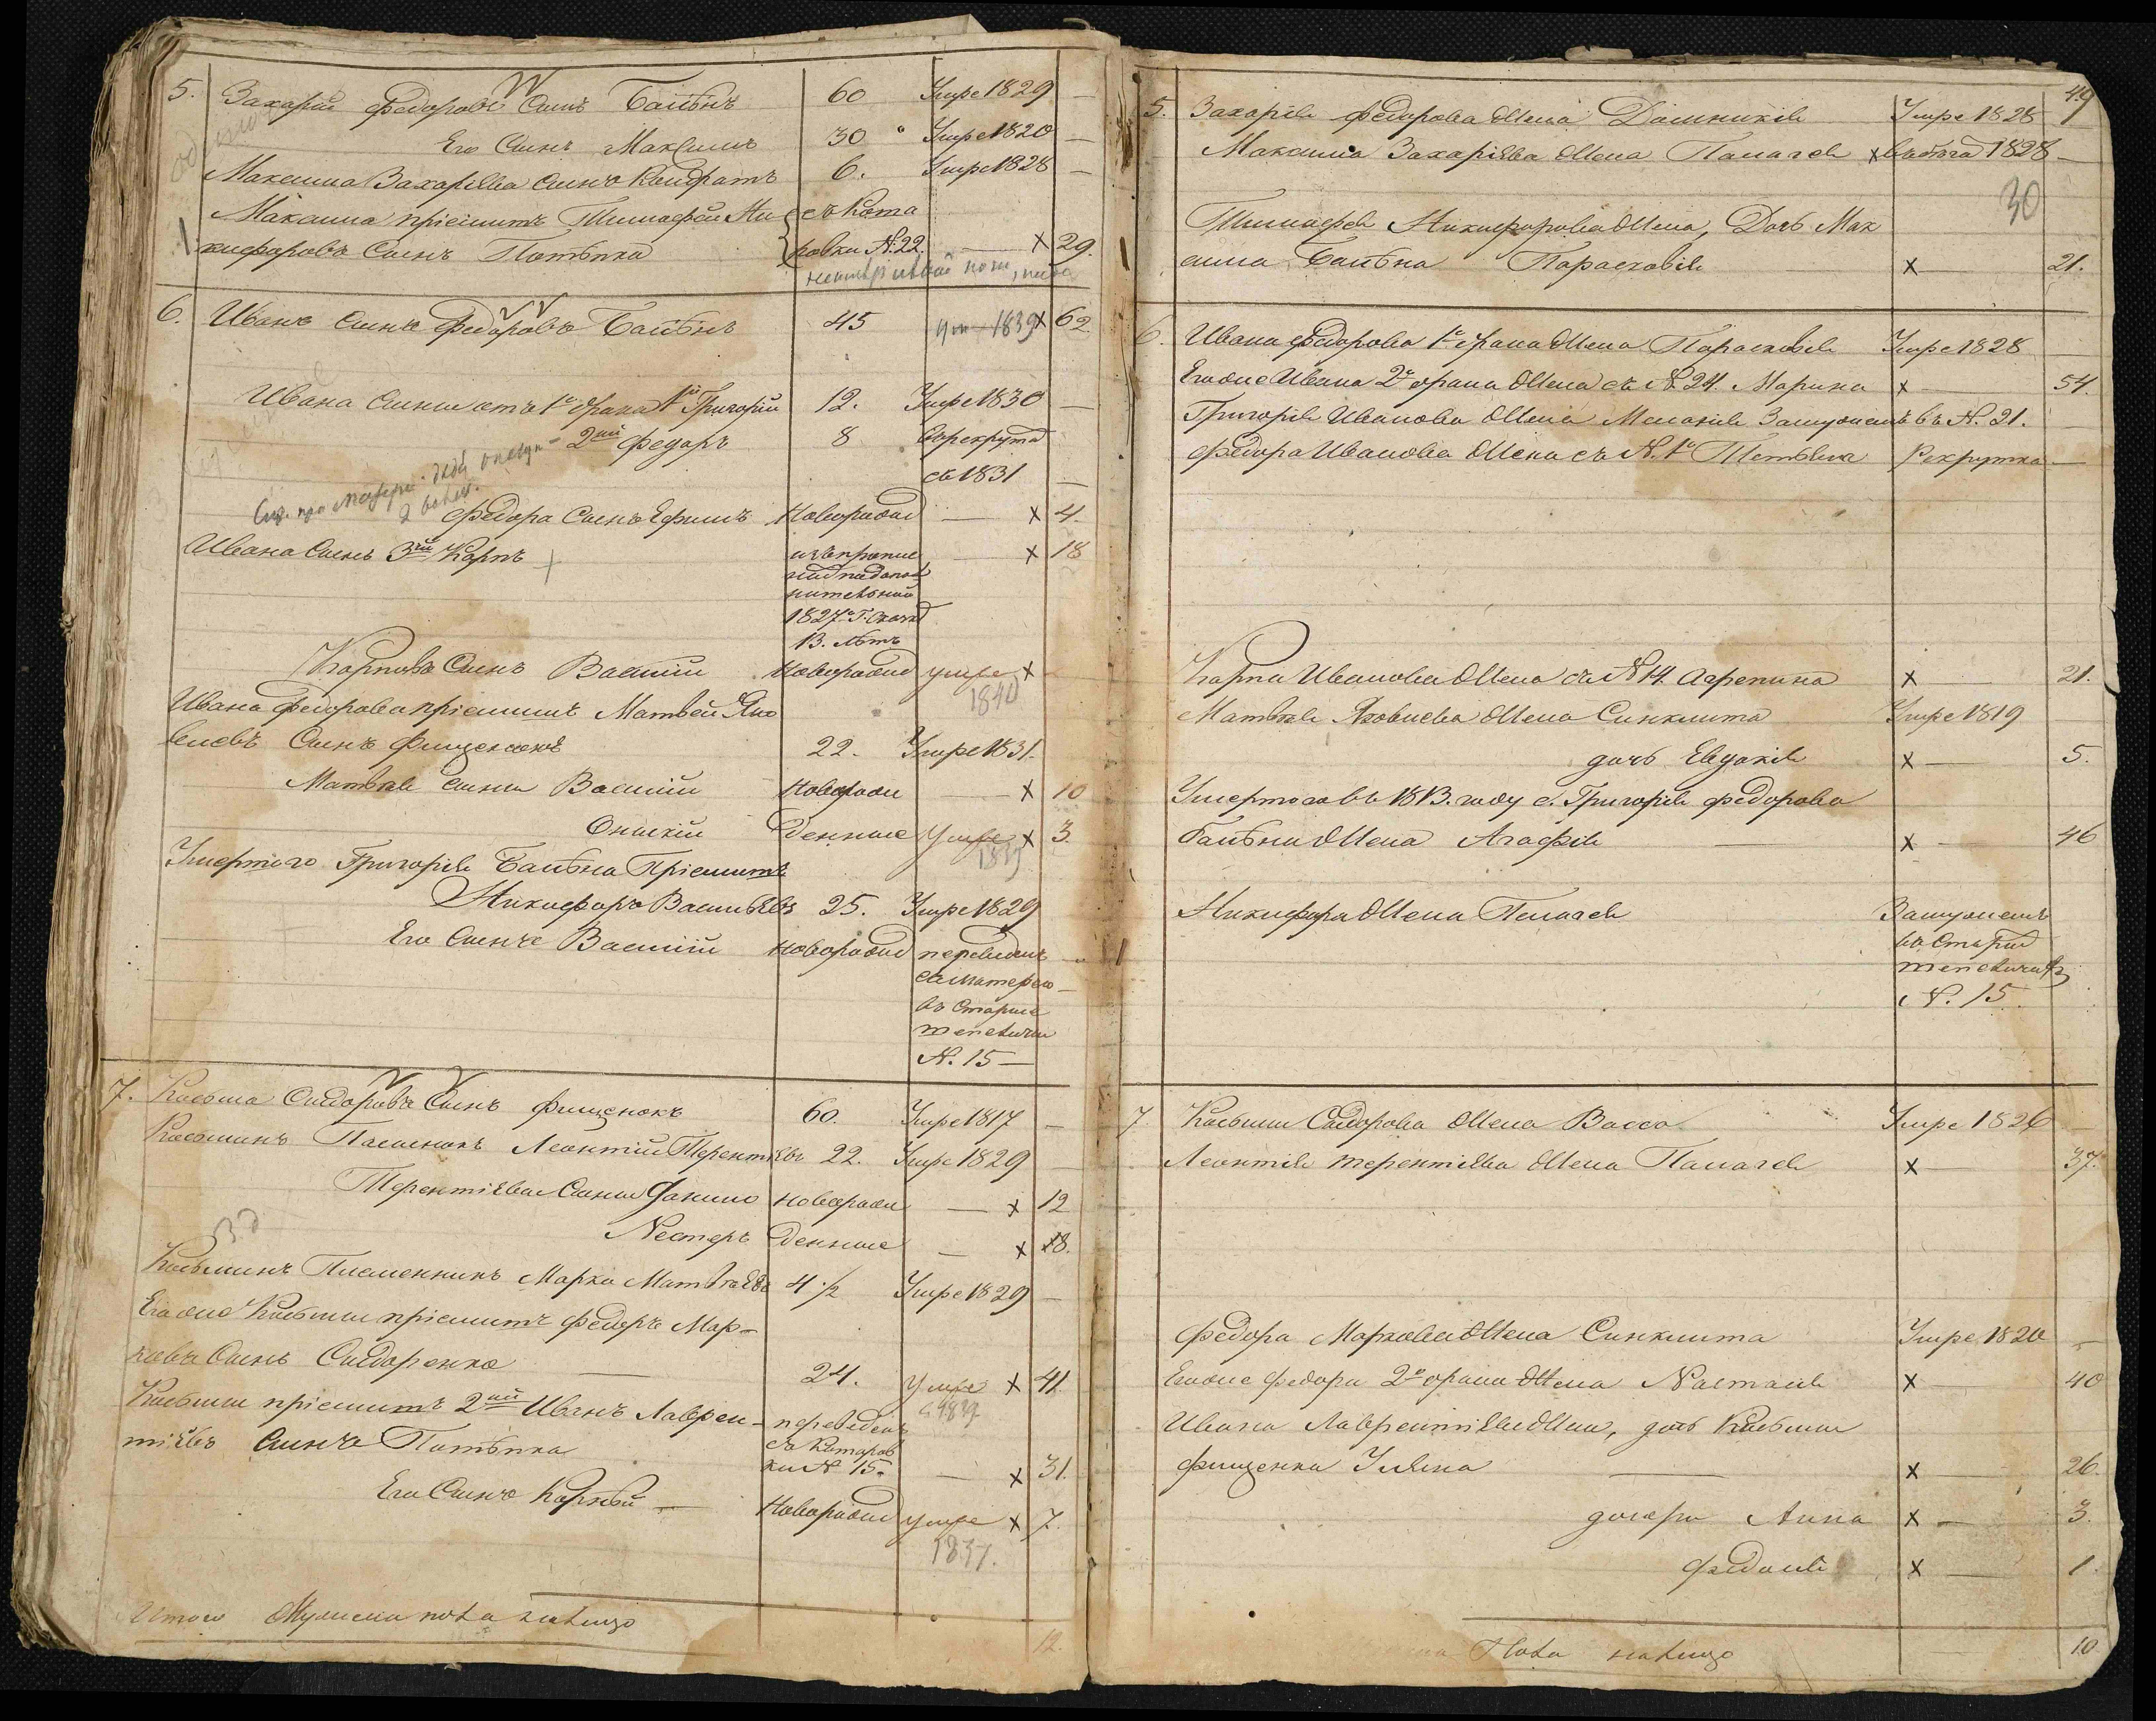 5. Захарий Федоровъ Сынъ Бабѣнъ 60 Умре 1829 —
Его Сынъ Максимъ 30 Умре 1820 —
Максима Захаріева Сынъ Кондратъ 6. Умре 1828 —
Максима пріемитъ Тимофей Ни- съ Кома
кифоровъ Сынъ Потѣпка ровки №. 22. — х 29.
6. Иванъ Сынъ Федоровъ Бабѣнъ 45 1839 х 62.
Ивана Сыны отъ 1го брака 1й Григорій 12. Умре 1830 —
2ий Федоръ 8 Въ рекрута
съ 1831 —
Федора Сынъ Ефимъ Новорожд — х 4.
Ивана Сынъ 3ій Карпъ изъ пропис — х 18
1827го Г.
13. лѣтъ
Карповъ Сынъ Василій Новорожд умре х
1840
Ивана Федорова пріемишъ Матвей Яко
влевъ Сынъ Фищенокъ 22. Умре 1831.
Матвѣя сыны Василій Новорож — х 10
Онискій денные Умре х 3.
Умершого Григорія Бабѣна Пріемитъ
Никифоръ Васильевъ 25. Умре 1829
Его Сынъ Василій Новорожд переведенъ
съ матерью —
въ Старые
тепеличи
№. 15 —
7. Косьма Сидоровъ Сынъ Фищенокъ 60. Умре 1817 —
Косьминъ Пасынокъ Леонтій Терентіевъ 22. Умре 1829 —
Терентіева Сыны Данило новорож — х 12
Нестеръ денные — х 18.
Косьминъ Племенникъ Марко Матвѣевъ 4 ½ Умре 1829 —
Егоже Косьмы пріемитъ Федоръ Мар-
ковъ Сынъ Сидоренко — 24. Умре х 41.
1839
Косьмы пріемитъ 2ий Иванъ Лаврен- переведенъ
тіевъ Сынъ Потѣпка съ Комаров
ки № 15. — х 31.
Его Сынъ Корнѣй — Новорожд умре х 7.
1837.
Итого Мужеска пола налицо 12.
49
5. Захарія Федорова Жена Домникія Умре 1828
Максима Захаріева Жена Палагея х 1828 —
30
Тимофея Никифорова Жена, Дочь Мак
сима Бабѣна Парасковія х — 21.
6. Ивана Федорова 1го брака Жена Парасковія Умре 1828 —
Егоже Ивана 2го брака Жена съ №. 24. Марина х — 54.
Григорія Иванова Жена Меланія Замужемъ въ №. 21.
Федора Иванова Жена съ №. 1го Тетьяна Рекрутка —
Карпа Иванова Жена съ № 14. Агрепина х — 21.
Матвѣя Яковлева Жена Синклита Умре 1819
дочь Евдокія х — 5.
Умершого въ 1813. году с. Григорія Федорова
Бабѣна Жена Агафія — х — 46
Никифора Жена Пелагея Замужемъ
въ Старые
тепеличи
№. 15.
7. Косьмы Сидорова Жена Васса Умре 1826 —
Леонтія Терентіева Жена Палагея х — 37.
Федора Маркова Жена Синклита Умре 1820 —
Егоже Федора 2го брака Жена Настасія х — 40
Ивана Лаврентіева Жена, дочь Косьмы
Фищенка Уляна — х — 26.
дочери Анна х — 3.
Федосія х — 1
Пола налицо 10